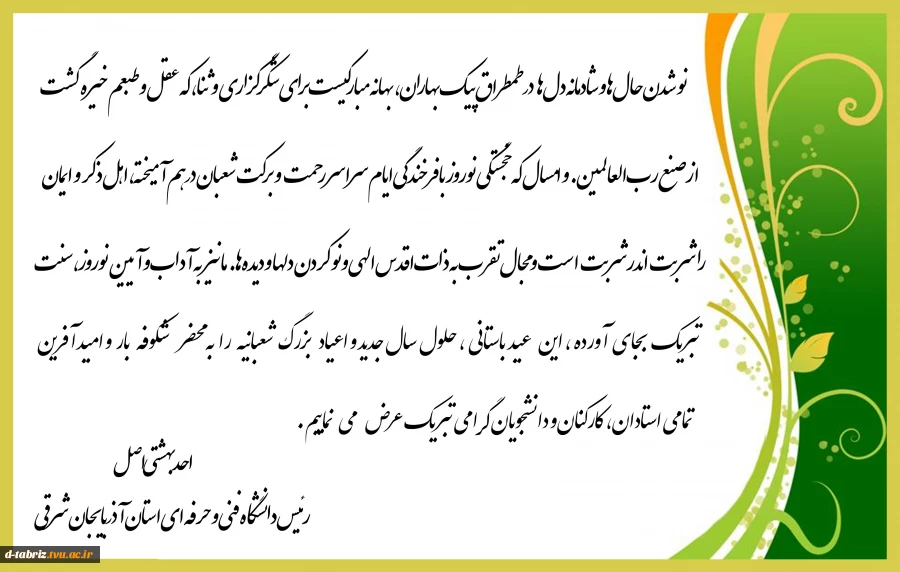 نو شدن حال ها و شادمانه دل ها در طمطراق پیک بهاران، بهانه مبارکیست برای شکرگزاری و ثنا، که عقل و طبعم خیره گشت
از صنع رب العالمین. و امسال که خجستگی نوروز با فرخندگی ایام سراسر رحمت و برکت شعبان درهم آمیخته، اهل ذکر و ایمان
را شربت اندر شربت است و مجال تقرب به ذات اقدس الهی و نو کردن دلها و دیده ها. ما نیز به آداب و آیین نوروز، سنت
تبریک بجای آورده ، این عید باستانی ، حلول سال جدید و اعیاد بزرگ شعبانیه را به محضر شکوفه بار و امید آفرین
تمامی استادان، کارکنان و دانشجویان گرامی تبریک عرض می نماییم .
احد بهشتی اصل
رئیس دانشگاه فنی و حرفه ای استان آذربایجان شرقی
d-tabriz.tvu.ac.ir